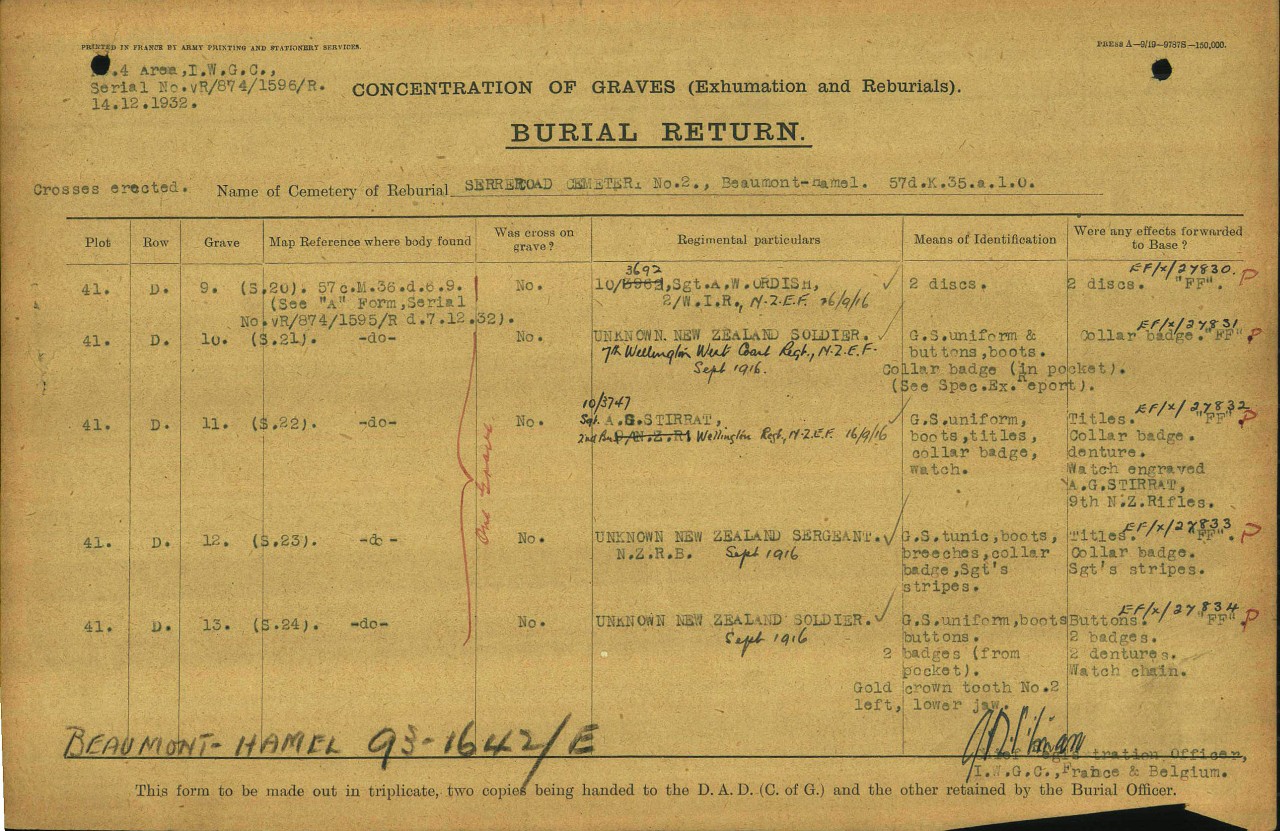 PRINTED IN FRANCE BY ARMY PRINTING AND STATIONERY SERVICES.
PRESS A—9/19—9787S—150,000.
.4 Area,I.W.G.C.,
Serial No.vR/874/1596/R.
14.12.1932.
CONCENTRATION OF GRAVES (Exhumation and Reburials).
BURIAL RETURN.
Crosses erected. Name of Cemetery of Reburial SERRE ROAD CEMETERY No.2., Beaumont-Hamel. 57d.K.35.a.1.0.
Plot Row Grave Map Reference where body found Was cross on grave? Regimental particulars Means of Identification Were any effects forwarded to Base?
3692 EF/x/27830.
41. D. 9. (S.20). 57c.M.36.d.6.9. No. 10/3962,Sgt.A.W.ORDISH, 2 discs. 2 discs. "FF". P
(See "A" Form,Serial 2/W.I.R., N.Z.E.F. 26/9/16
No.vR/874/1595/R d.7.12.32).
EF/x/27831
41. D. 10. (S.21). -do- No. UNKNOWN NEW ZEALAND SOLDIER. G.S.uniform & Collar badge. "FF". P
7th Wellington West Coast Regt., N.Z.E.F. buttons,boots.
Sept 1916. Collar badge (in pocket).
(See Spec.Ex.Report).
10/3747 EF/x/27832
41. D. 11. (S.22). -do- No. Sgt. A.G.STIRRAT, G.S.uniform, Titles. "FF". P
2nd Bn Wellington Regt, N.Z.E.F. 16/9/16 boots,titles, Collar badge.
collar badge, denture.
watch. Watch engraved
A.G.STIRRAT,
9th N.Z.Rifles.
One Grave
EF/x/27833
41. D. 12. (S.23). -do- No. UNKNOWN NEW ZEALAND SERGEANT. G.S.tunic,boots, Titles. "FF". P
N.Z.R.B. Sept 1916 breeches,collar Collar badge.
badge,Sgt's Sgt's stripes.
stripes.
EF/x/27834
41. D. 13. (S.24). -do- No. UNKNOWN NEW ZEALAND SOLDIER. G.S.uniform,boots Buttons. "FF". P
Sept 1916 buttons. 2 badges.
2 badges (from 2 dentures.
pocket). Watch chain.
Gold crown tooth No.2
left, lower jaw.
BEAUMONT-HAMEL 93-1642/E
Registration Officer,
I.W.G.C.,France & Belgium.
This form to be made out in triplicate, two copies being handed to the D.A.D. (C. of G.) and the other retained by the Burial Officer.